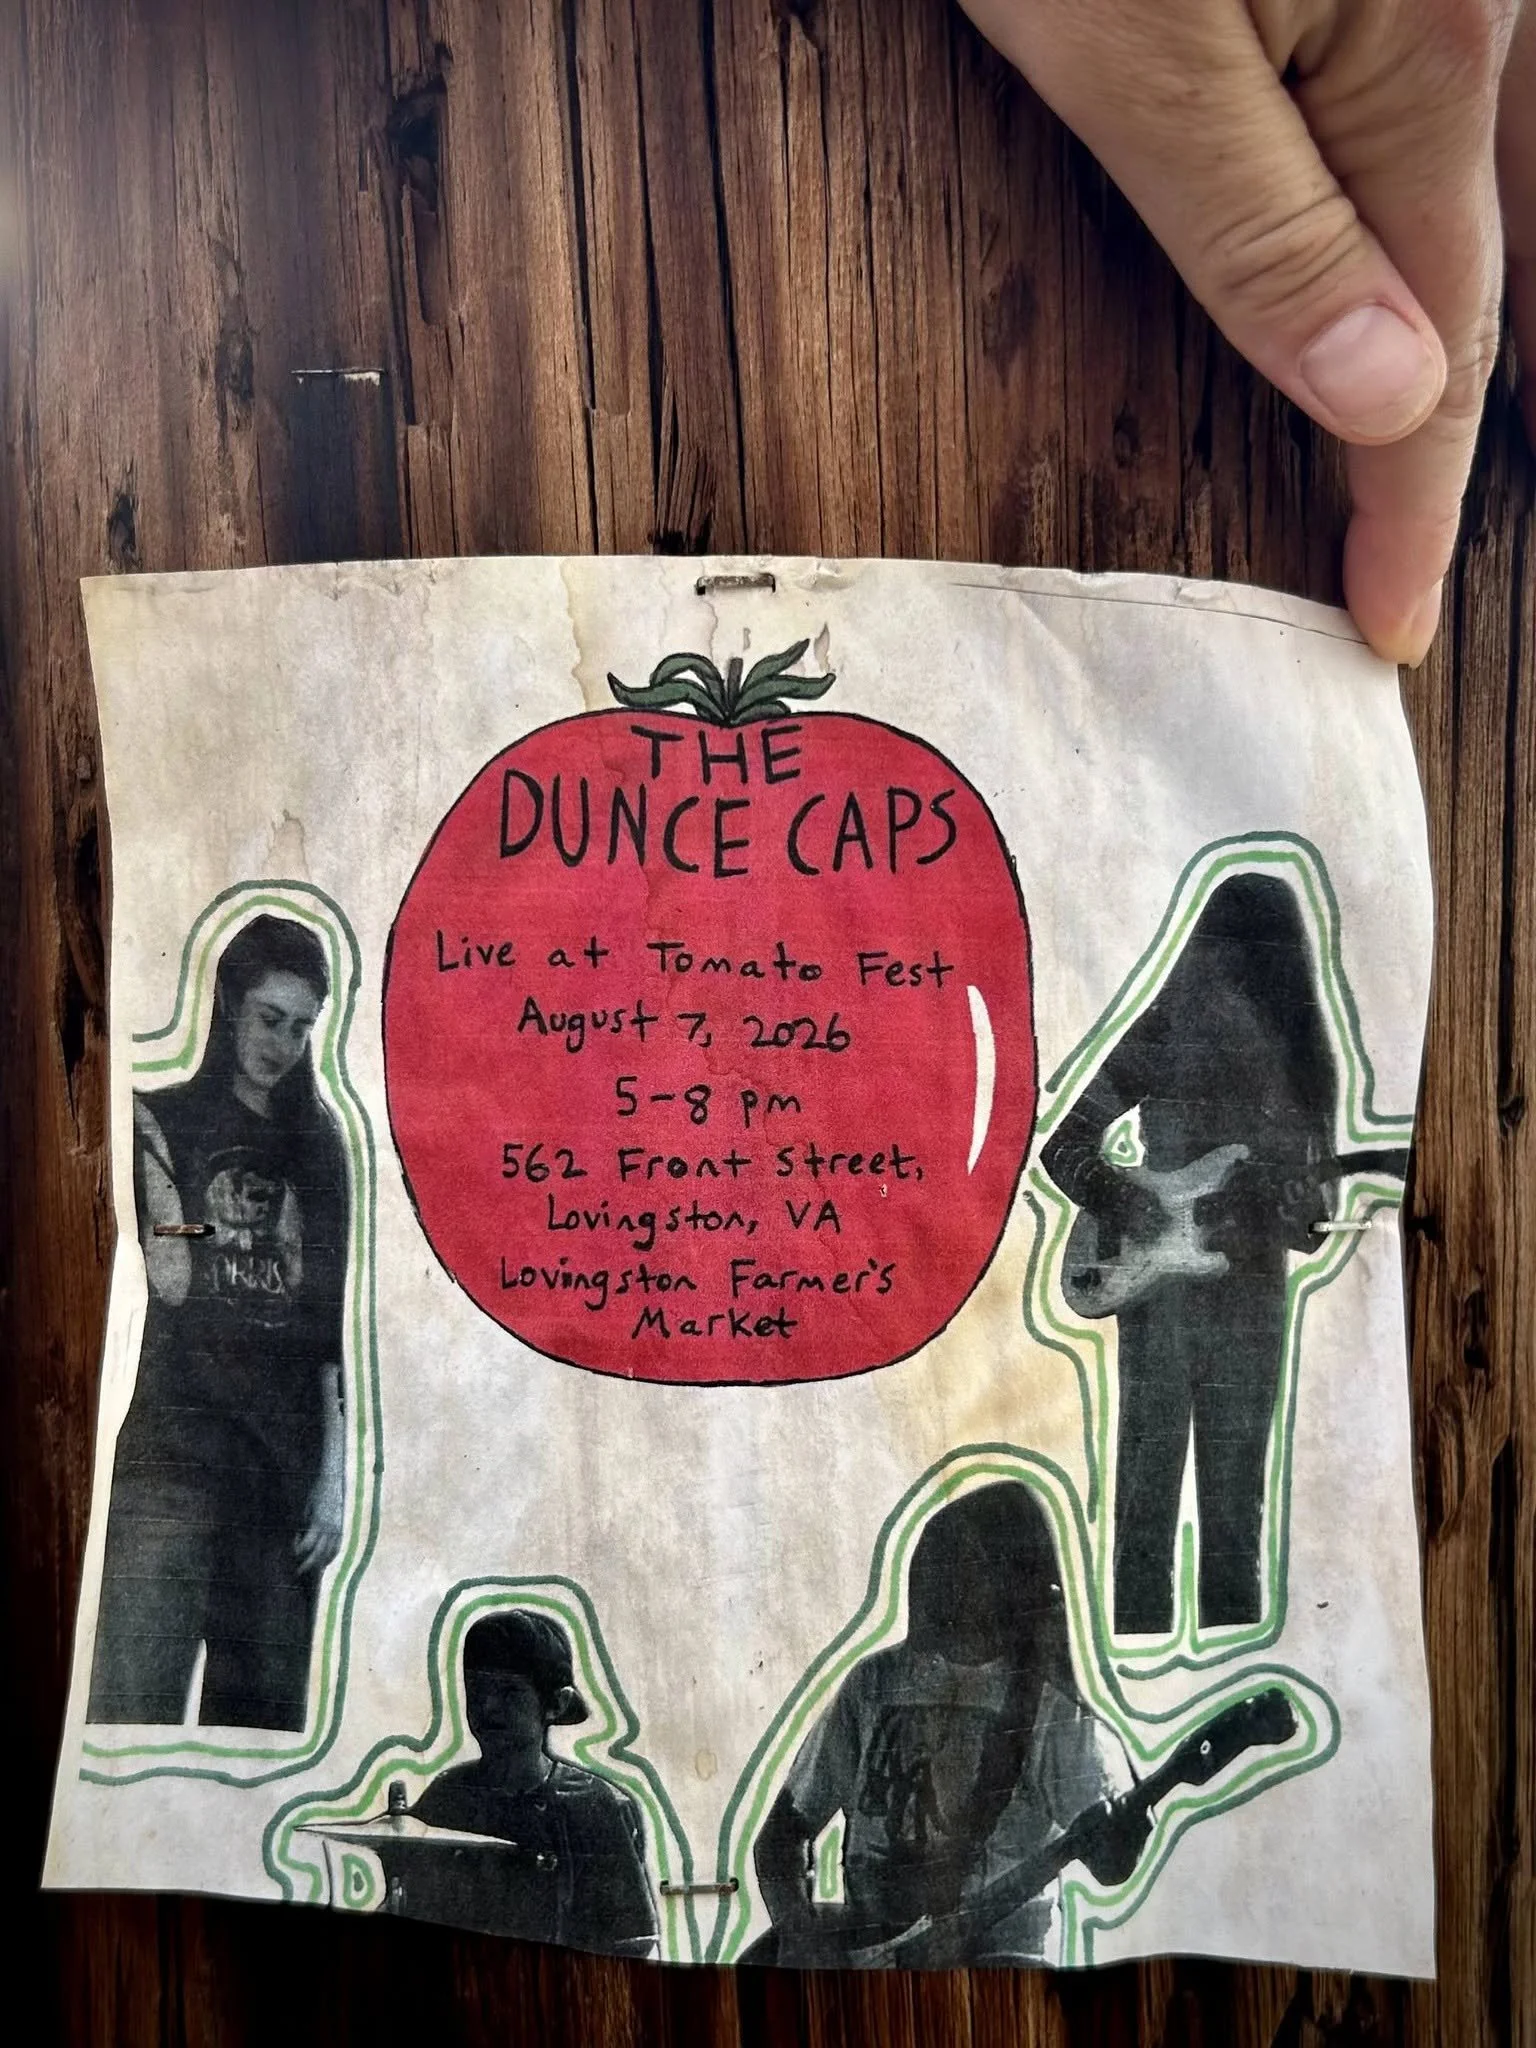 THE
DUNCE CAPS
Live at Tomato Fest
August 7, 2026
5-8 pm
562 Front Street,
Lovingston, VA
Lovingston Farmer's
Market